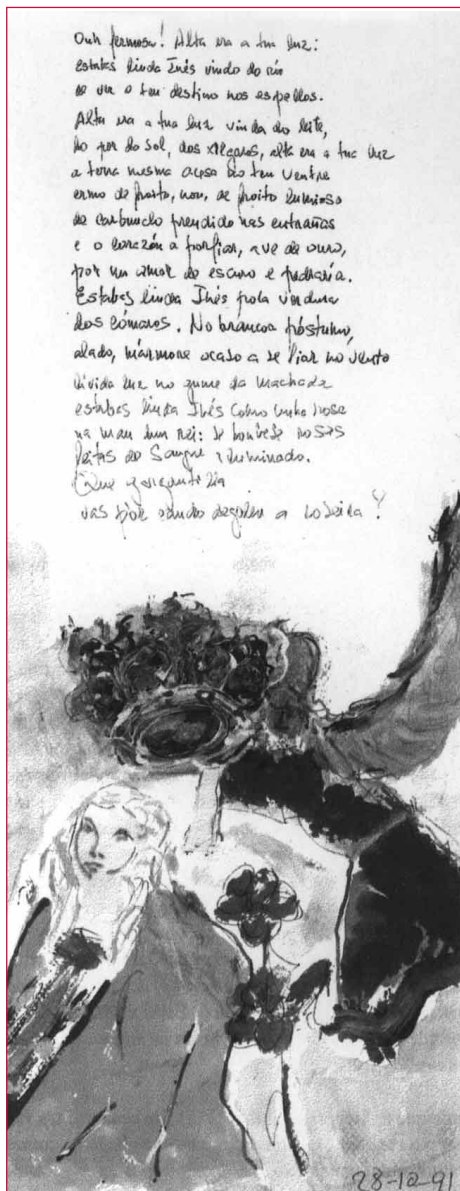 Ouh fermosa! Alta era a tua luz:
estabas linda Inés vindo do río
de ver o teu destino nos espellos.
Alta era a tua luz vinda do leite,
do por do sol, dos álgaros, alta era a tua luz
a terra mesma acesa do teu ventre
ermo de froito, non, de froito luminoso
de carbunclo prendido nas entrañas
e o corazón a porfiar, ave de ouro,
por un amor de escuro e pedraría.
Estabas linda Inés pola verdura
dos cómaros. No brancor póstumo,
alado, mármore ocaso a se liar no vento
lívida luz no gume da machada
estabas linda Inés como unha rosa
na man dun rei: se houbese rosas
feitas de sangue iluminado.
Que
vas a
28-12-91